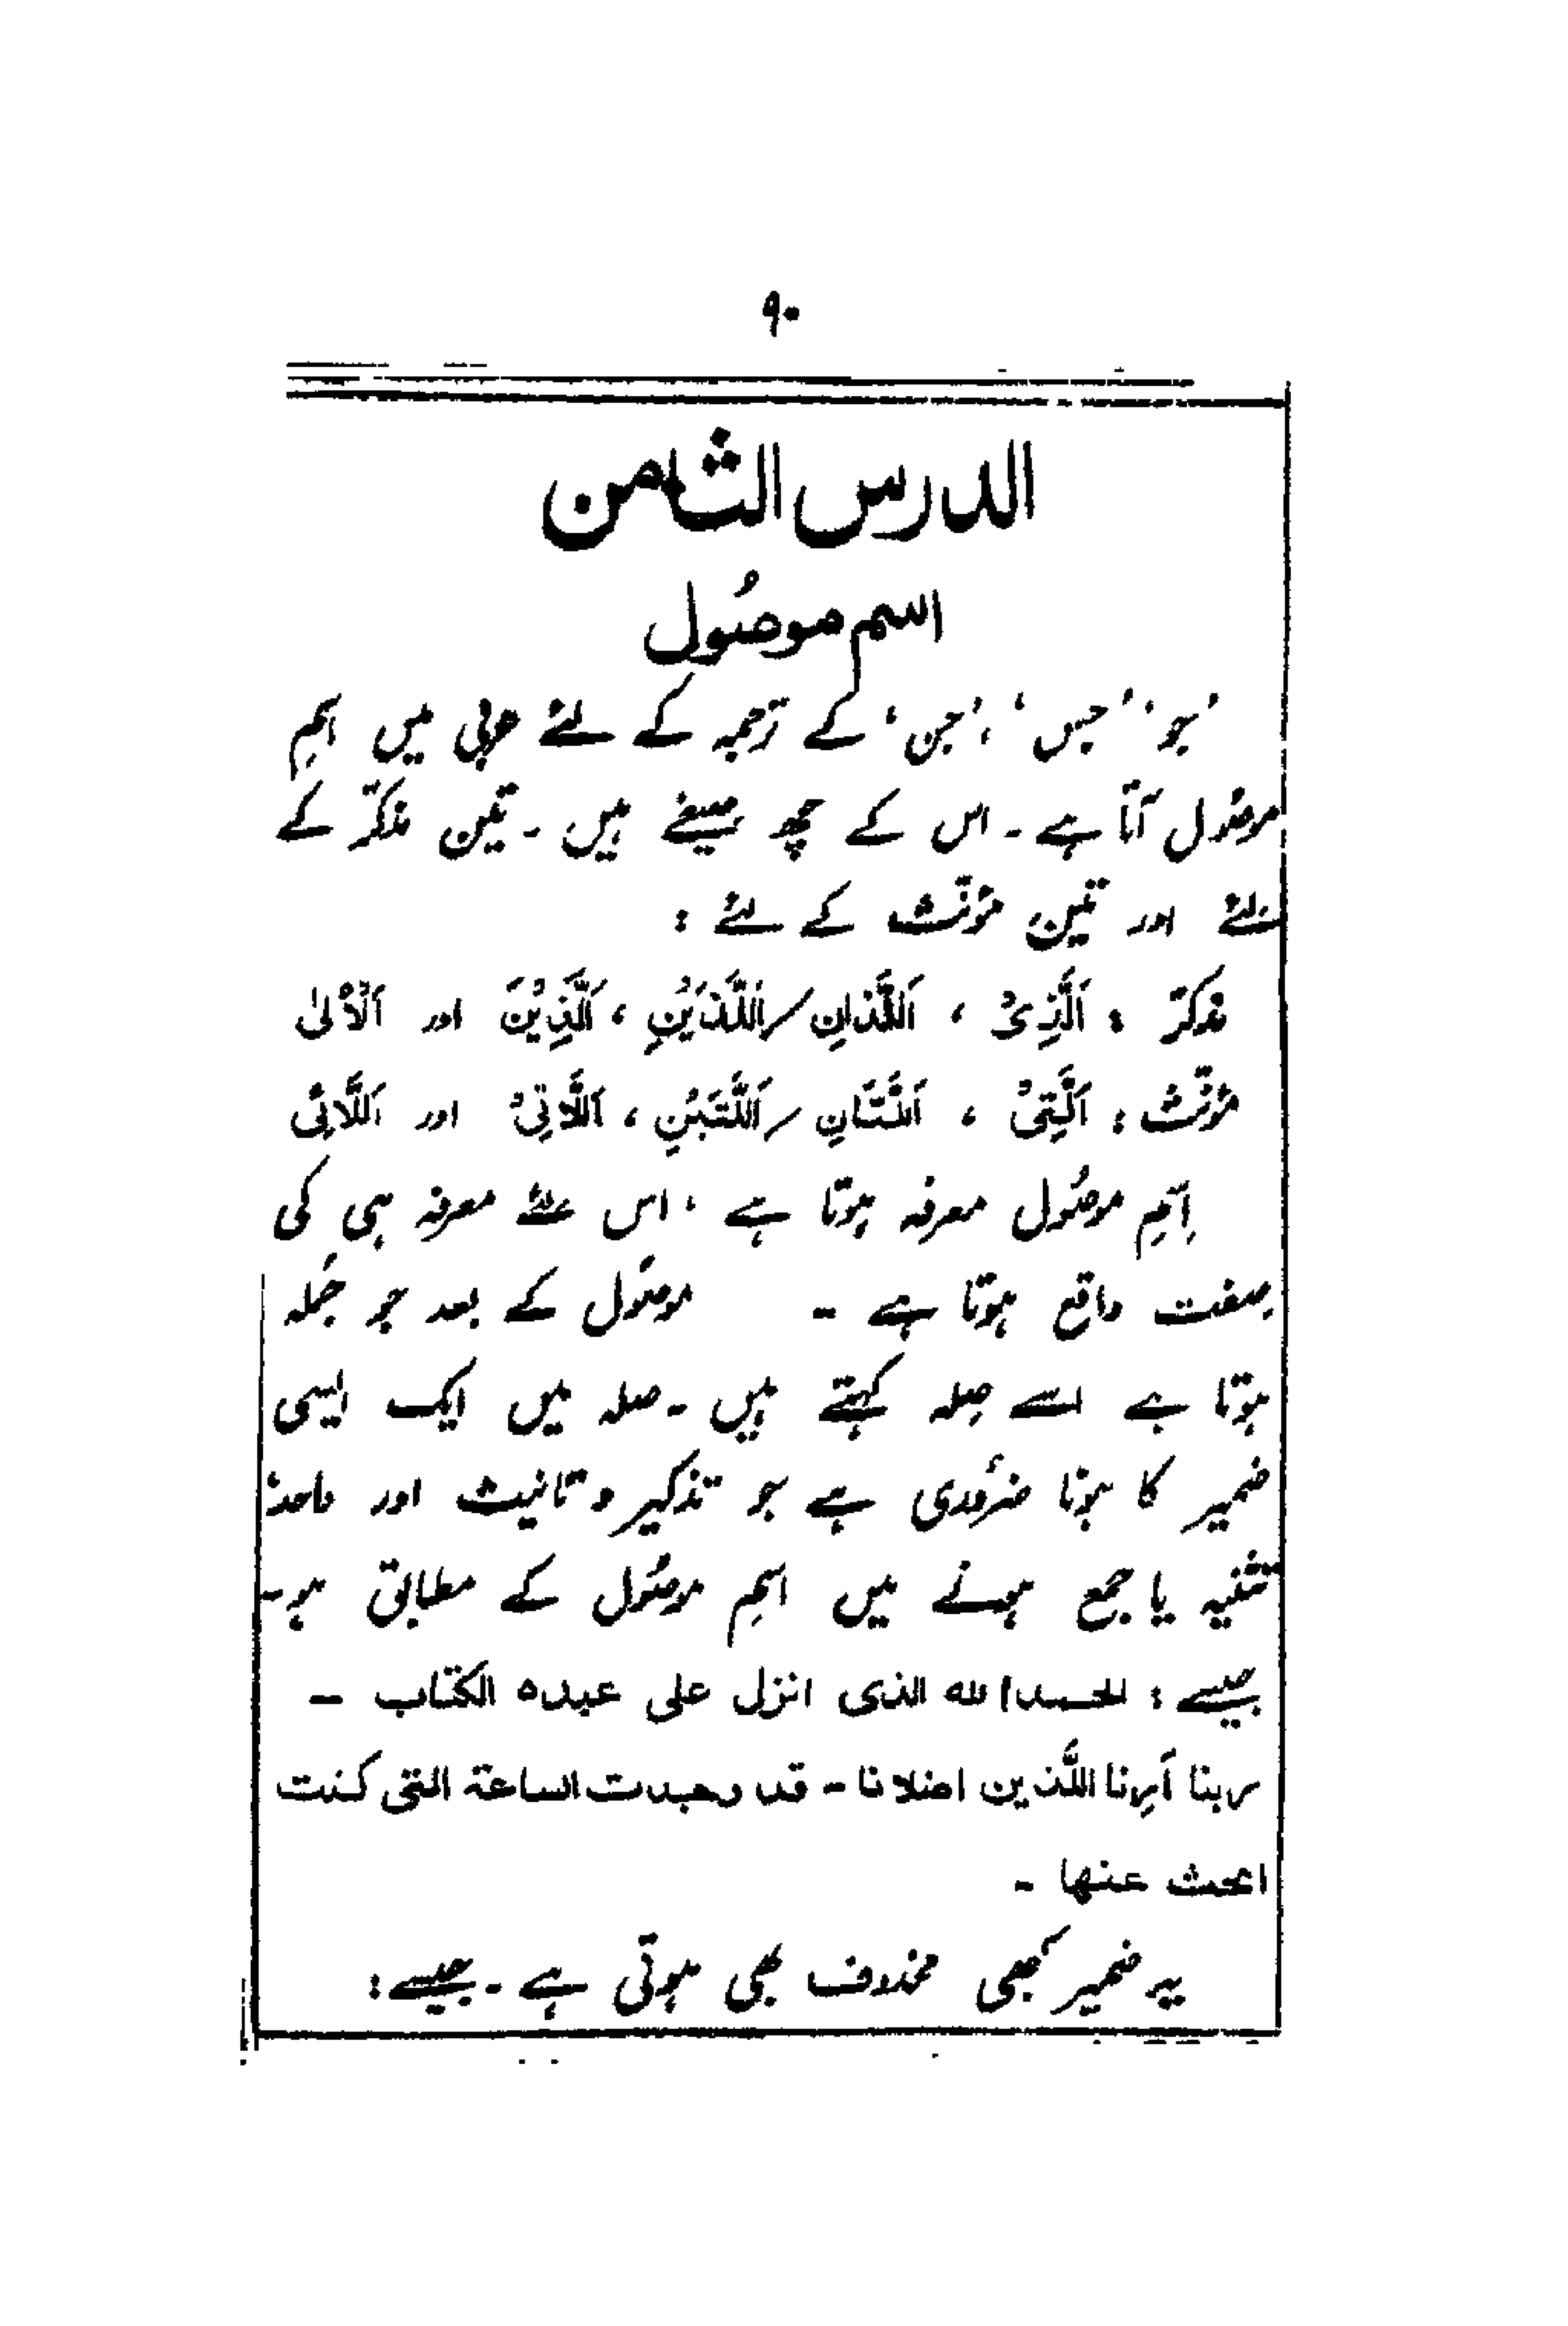 ۹۰
الدرس الثامن
اسم موصُول
'جو' 'جس'، 'جن' کے ترجمہ کے لئے عربی میں اسمِ
موصُول آتا ہے ۔ اس کے چھ صیغے ہیں ۔ تین مذکّر کے
لئے اور تین مؤنّث کے لئے :
مذکّر : اَلَّذِیْ ، اَللَّذَانِ / اَللَّذَیْنِ ، اَلَّذِیْنَ اور اَلْاُلیٰ
مؤنّث : اَلَّتِیْ ، اَللَّتَانِ / اَللَّتَیْنِ ، اَللَّاتِیْ اور اَللَّائِی
اِسمِ موصُول معرفہ ہوتا ہے ، اس لئے معرفہ ہی کی
صِفت واقع ہوتا ہے ۔ موصُول کے بعد جو جُملہ
ہوتا ہے اسے صِلہ کہتے ہیں ۔ صلہ میں ایک ایسی
ضمیر کا ہونا ضرُوری ہے جو تذکیر و تانیث اور واحد،
تثنیہ یا جمع ہونے میں اسمِ موصُول کے مطابق ہو ۔
جیسے : الحمد لله الذی انزل علی عبده الکتاب ۔
ربنا اَرِنا اللَّذین اضلانا ۔ قد وجدت الساعة التی کنت
ابحث عنها ۔
یہ ضمیر کبھی محذوف بھی ہوتی ہے ۔ جیسے :